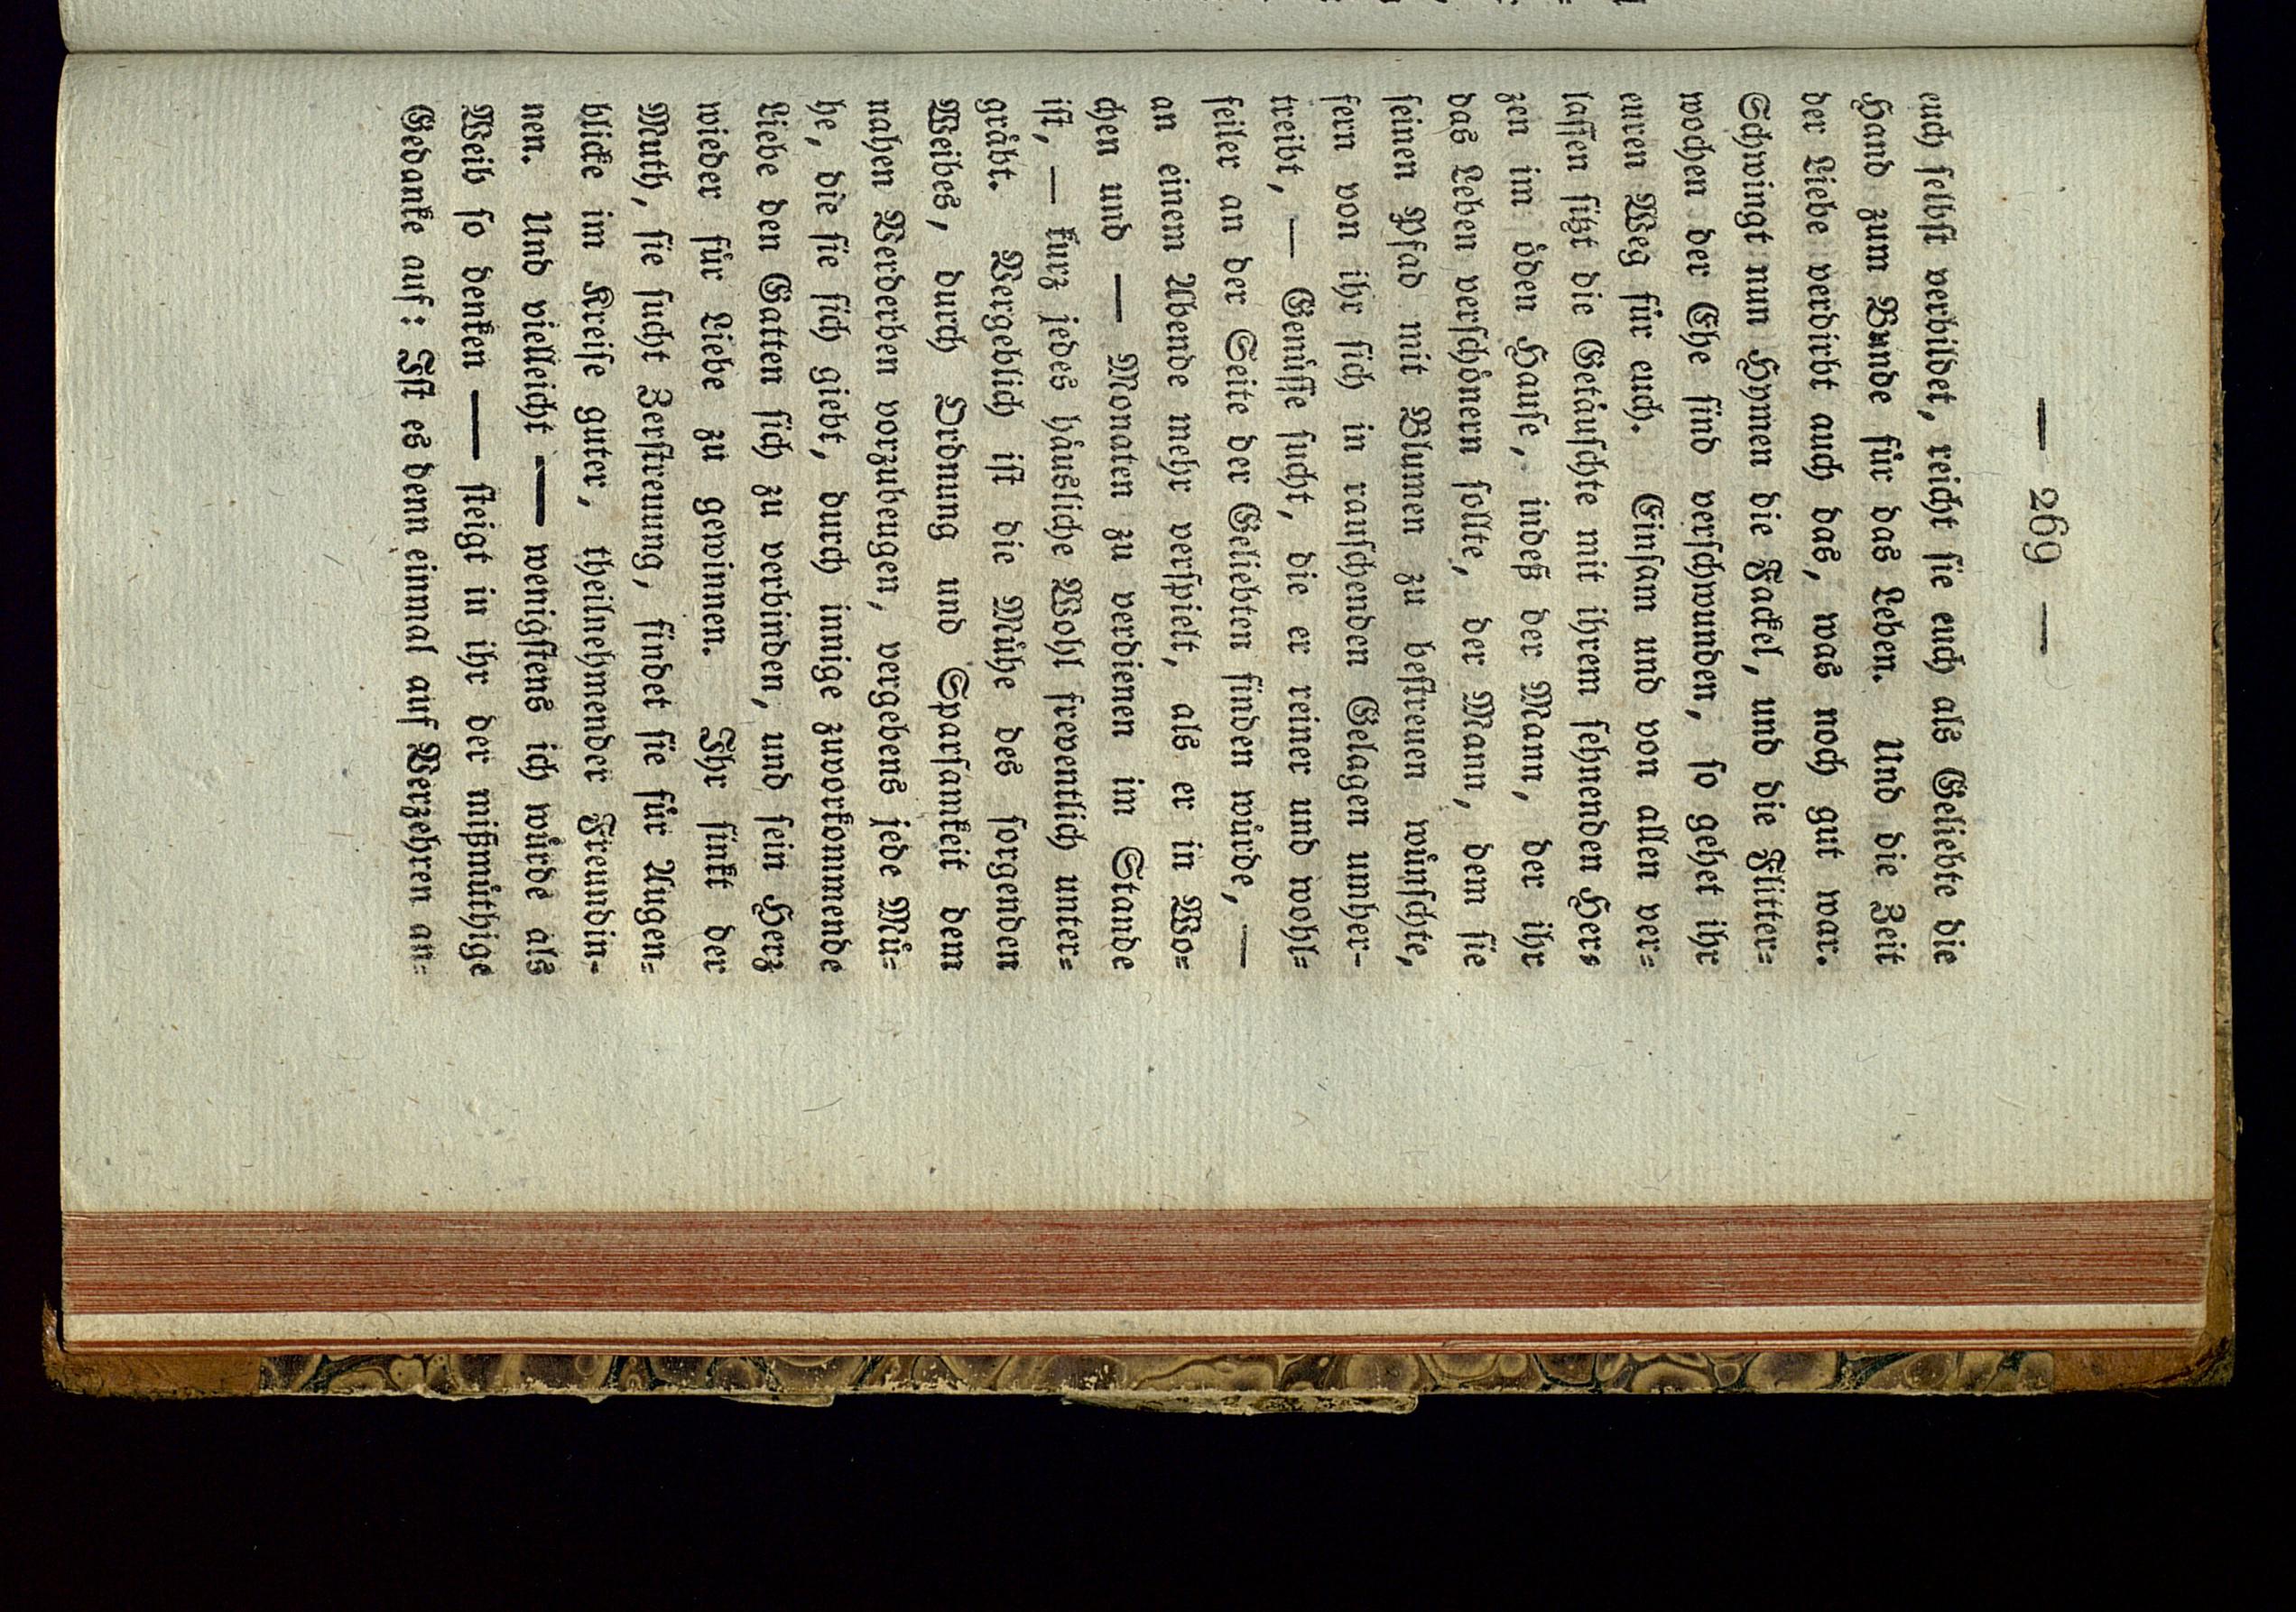 — 269 —
euch ſelbſt verbildet, reicht ſie euch als Geliebte die
Hand zum Bunde für das Leben. Und die Zeit
der Liebe verdirbt auch das, was noch gut war.
Schwingt nun Hymen die Fackel, und die Flitter=
wochen der Ehe ſind verſchwunden, ſo gehet ihr
euren Weg für euch. Einſam und von allen ver=
laſſen ſitzt die Getäuſchte mit ihrem ſehnenden Her=
zen im öden Hauſe, indeß der Mann, der ihr
das Leben verſchönern ſollte, der Mann, dem ſie
ſeinen Pfad mit Blumen zu beſtreuen wünſchte,
fern von ihr ſich in rauſchenden Gelagen umher=
treibt, — Genüſſe ſucht, die er reiner und wohl=
feiler an der Seite der Geliebten finden würde, —
an einem Abende mehr verſpielt, als er in Wo=
chen und — Monaten zu verdienen im Stande
iſt, — kurz jedes häusliche Wohl freventlich unter=
gräbt. Vergeblich iſt die Mühe des ſorgenden
Weibes, durch Ordnung und Sparſamkeit dem
nahen Verderben vorzubeugen, vergebens jede Mü=
he, die ſie ſich giebt, durch innige zuvorkommende
Liebe den Gatten ſich zu verbinden, und ſein Herz
wieder für Liebe zu gewinnen. Ihr ſinkt der
Muth, ſie ſucht Zerſtreuung, findet ſie für Augen=
blicke im Kreiſe guter, theilnehmender Freundin=
nen. Und vielleicht — wenigſtens ich würde als
Weib ſo denken — ſteigt in ihr der mißmüthige
Gedanke auf: Iſt es denn einmal auf Verzehren an=